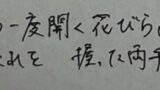 一度開く花びら
れを 握った両手